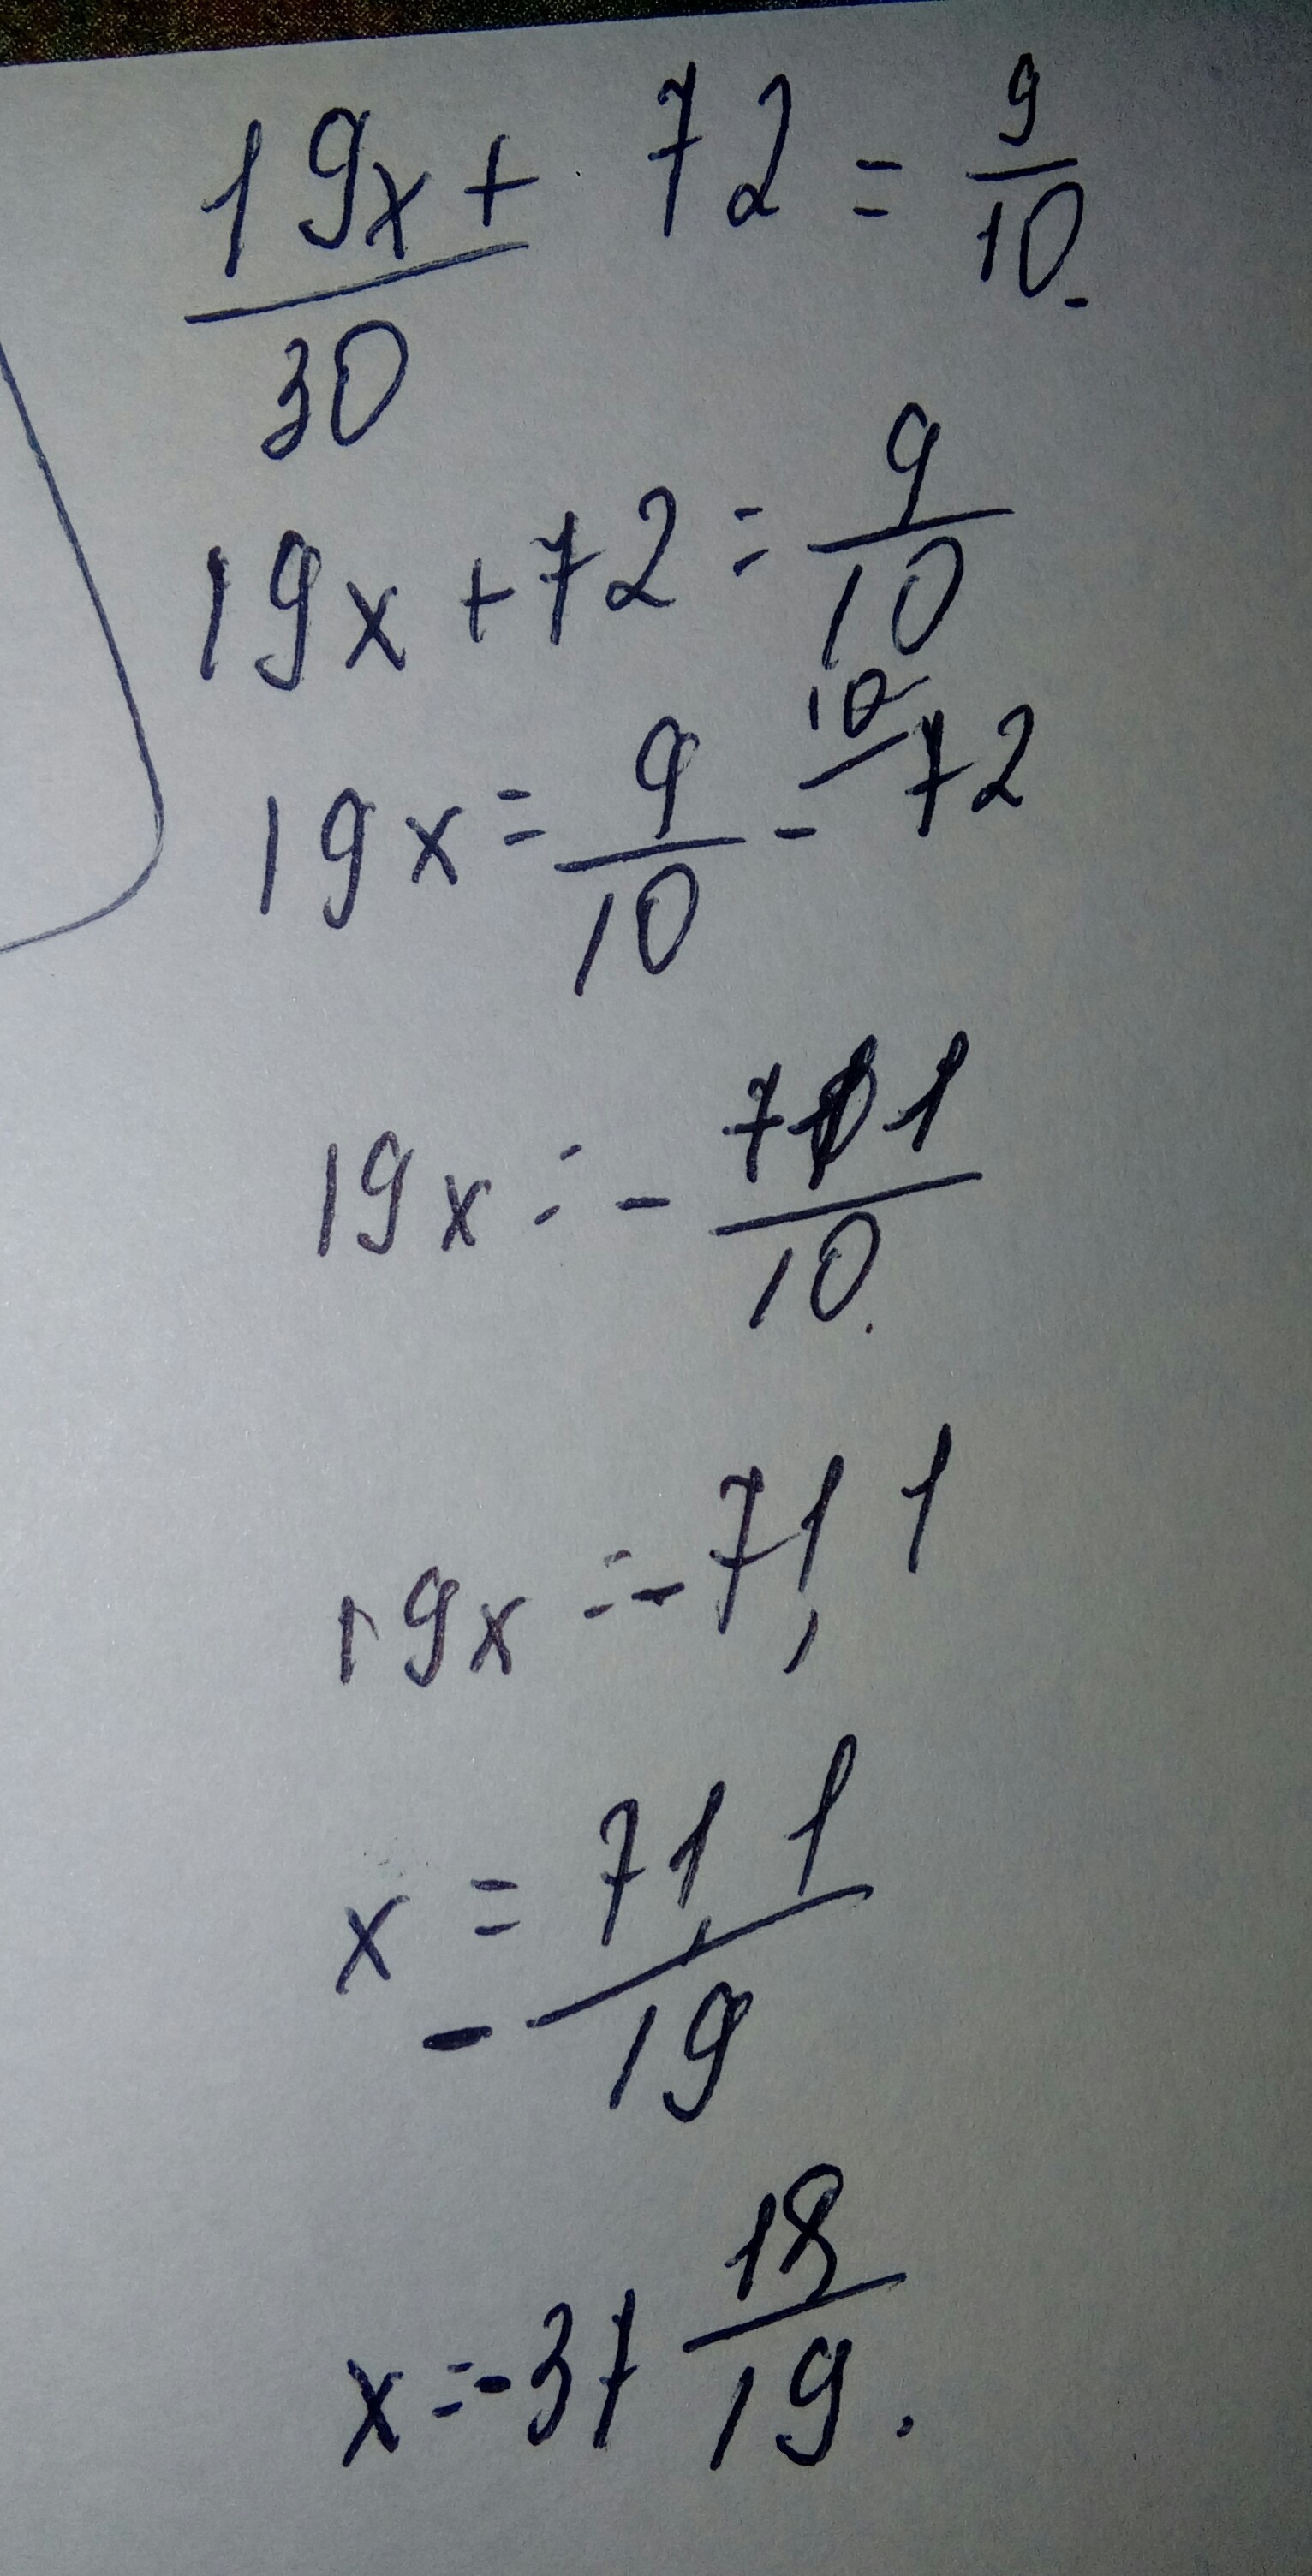 19x + 72 = 9/10
30
19x + 72 = 9/10
19x = 9/10 - 72
10
19x = - 711/10
19x = -71,1
x = - 71,1/19
x = -37 18/19.